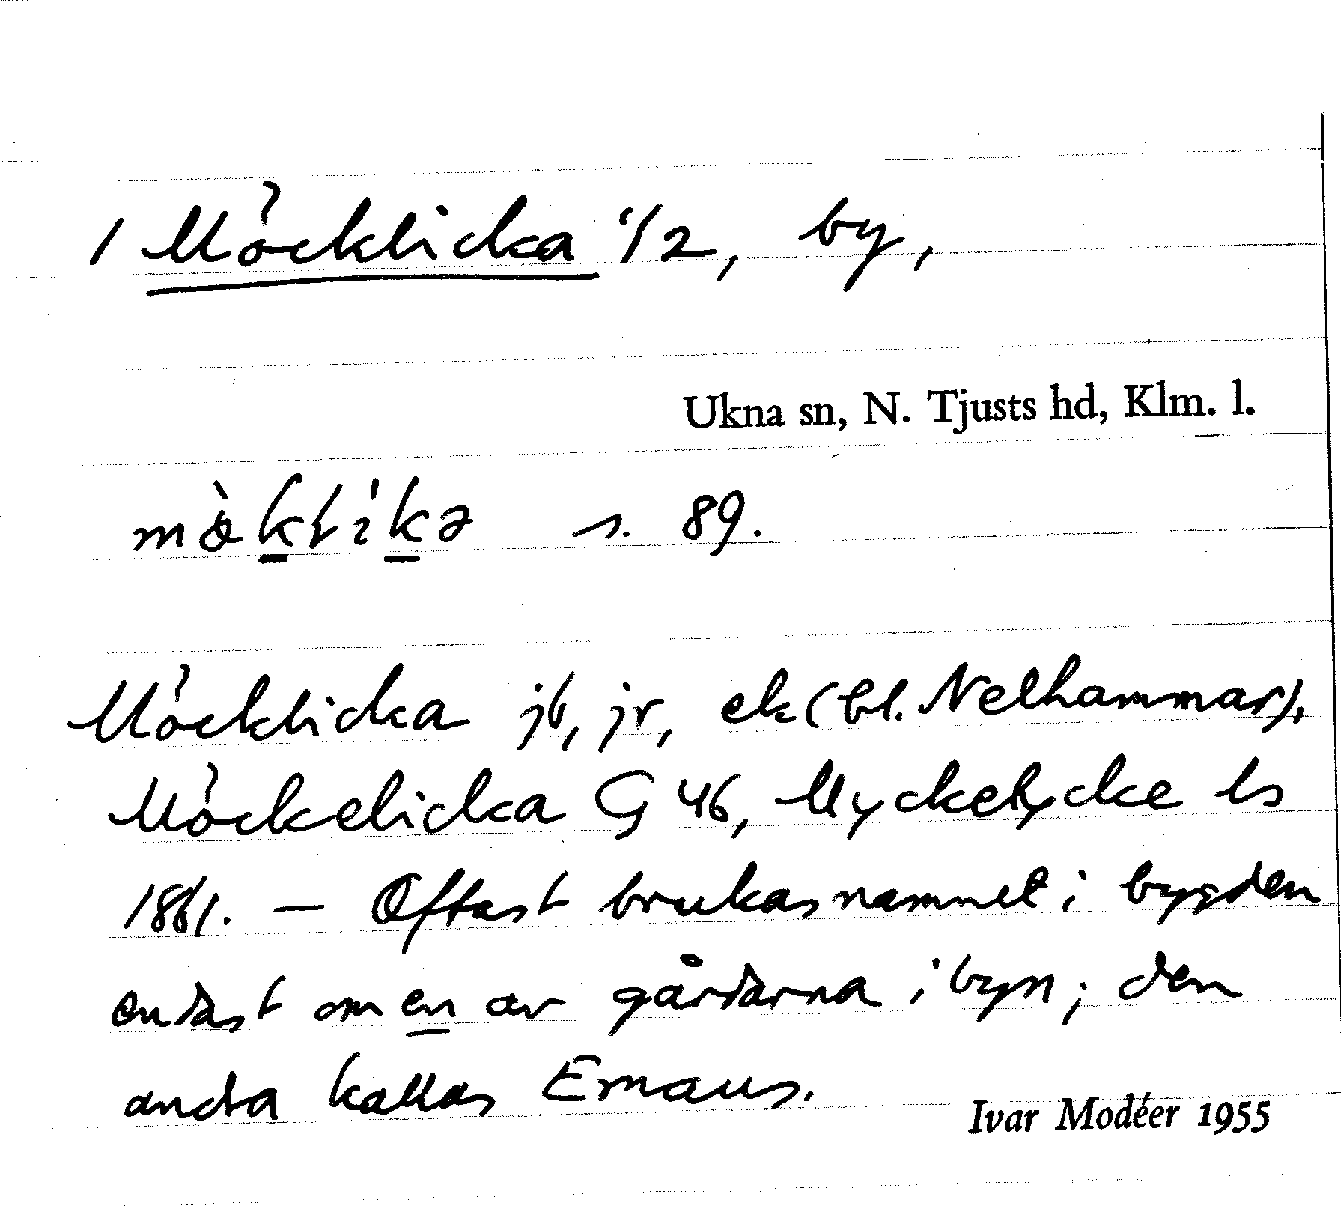 1 Möcklicka 1/2, by,
Ukna sn, N. Tjusts hd, Klm. l.
s. 89.
Möcklicka jb, jr, ek (bl. Nelhammar),
Möckelicka G 46, Myckelycke ls
1861. – Oftast brukas namnet i bygden
endast om en av gårdarna i byn; den
andra kallas Emaus.
Ivar Modéer 1955